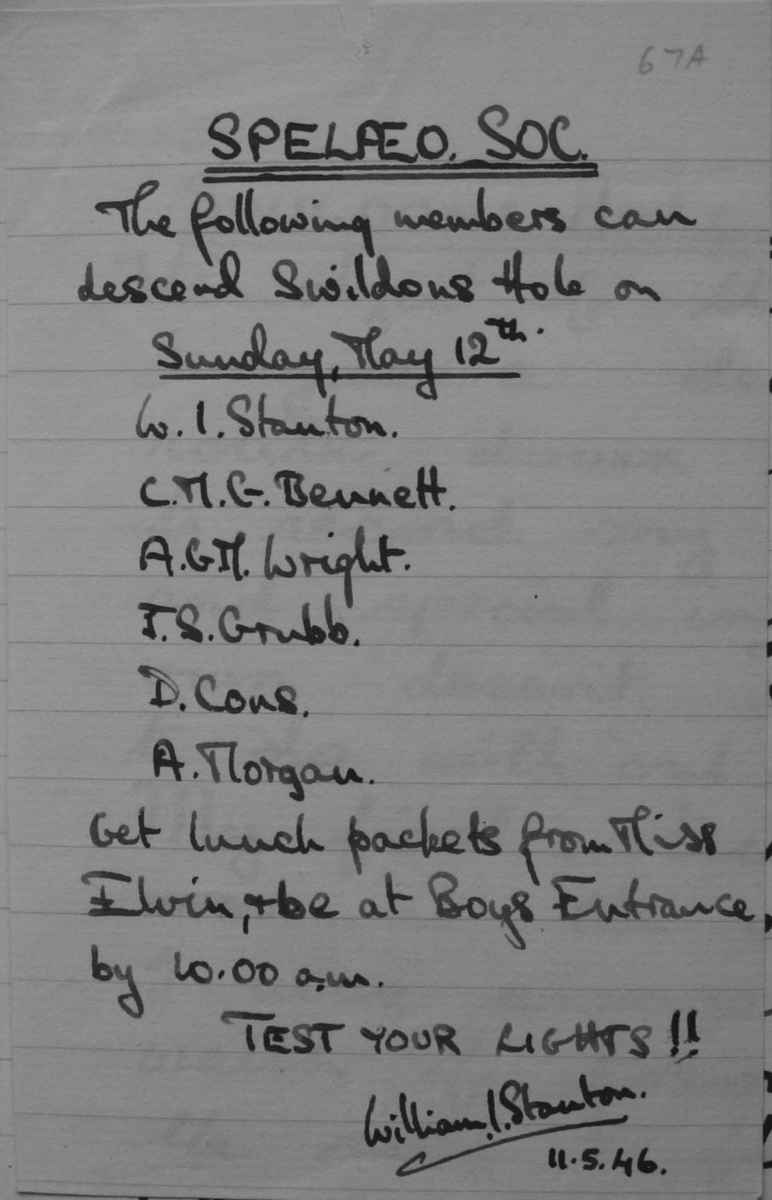 67A
SPELÆO. SOC.
The following members can
descend Swildons Hole on
Sunday, May 12th.
W. I. Stanton.
C.M.G. Bennett.
A.G.M. Wright.
J.S. Grubb.
D. Cons.
A. Morgan.
Get lunch packets from Miss
Elvin, & be at Boys Entrance,
by 10.00 a.m.
TEST YOUR LIGHTS!!
William I. Stanton.
11.5.46.